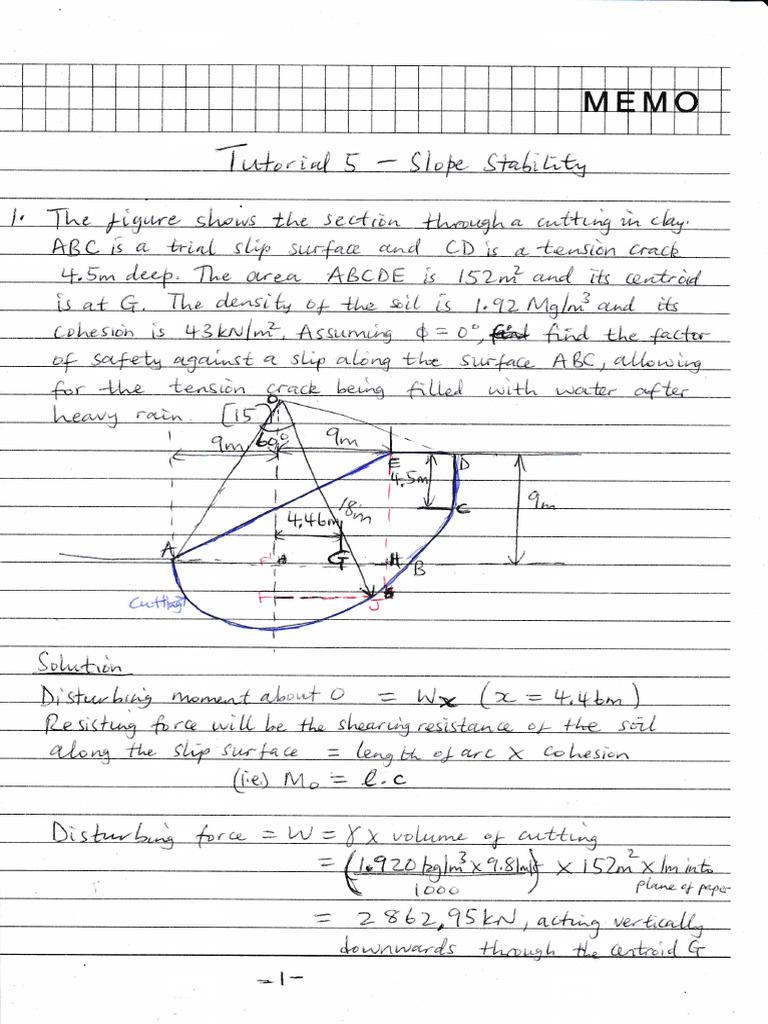 MEMO
Tutorial 5 – Slope Stability
1. The figure shows the section through a cutting in clay.
ABC is a trial slip surface and CD is a tension crack
4.5m deep. The area ABCDE is 152m² and its centroid
is at G. The density of the soil is 1.92 Mg/m³ and its
cohesion is 43 kN/m². Assuming ϕ = 0°, find find the factor
of safety against a slip along the surface ABC, allowing
for the tension crack being filled with water after
heavy rain. [15]
O
9m
60°
9m
E
D
4.5m
9m
18m
4.46m
C
A
G
H
B
F
J
cutting
Solution
Disturbing moment about O = Wx (x = 4.46m)
Resisting force will be the shearing resistance of the soil
along the slip surface = length of arc × cohesion
(i.e) Mo = l.c
Disturbing force = W = γ × volume of cutting
= (1.920 kg/m³ × 9.81m/ ) × 152m² × 1m into
1000
plane of paper
= 2862,95kN, acting vertically
downwards through the centroid G
-1-